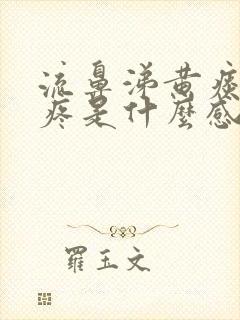 流鼻涕黄痰
疼是什麼感
羅玉文